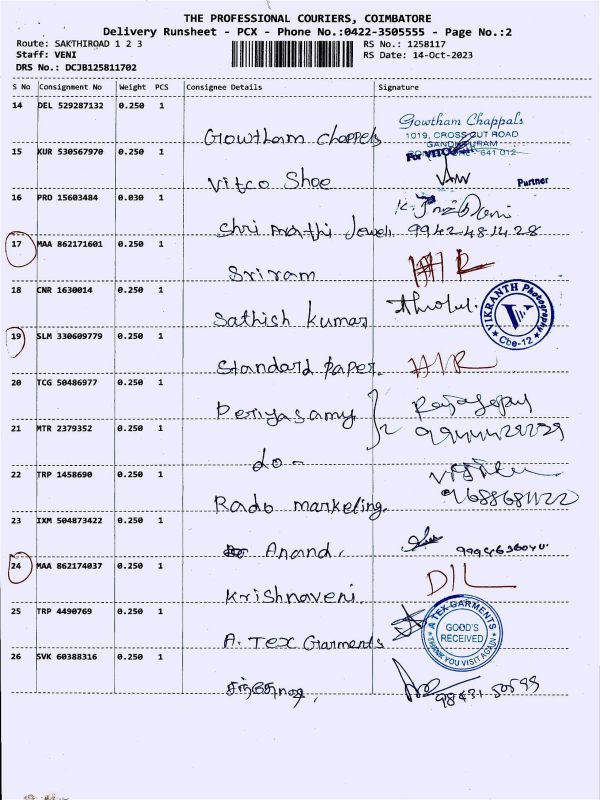 THE PROFESSIONAL COURIERS, COIMBATORE
Delivery Runsheet - PCX - Phone No.:0422-3505555 - Page No.:2
Route: SAKTHIROAD 1 2 3 RS No.: 1258117
Staff: VENI RS Date: 14-Oct-2023
DRS No.: DCJB125811702
S No Consignment No Weight PCS Consignee Details Signature
14 DEL 529287132 0.250 1
Gowtham Chappals
Gowtham Chappels 1019, CROSS CUT ROAD
GANDHIPURAM
15 KUR 530567970 0.250 1 641 012
For VITCO
Vitco Shoe Partner
16 PRO 15603484 0.030 1
Shri mathi Jewels 9942481428
17 MAA 862171601 0.250 1
Sriram
18 CNR 1630014 0.250 1 VIKRANTH Photography
Sathish kumar Cbe-12
19 SLM 330609779 0.250 1
Standard paper.
20 TCG 50486977 0.250 1
Periyasamy } 2
21 MTR 2379352 0.250 1
do -
22 TRP 1458690 0.250 1
Rado marketing.
23 IXM 504873422 0.250 1
Anand.
24 MAA 862174037 0.250 1 DIL
Krishnaveni.
25 TRP 4490769 0.250 1 A TEX GARMENTS
GOOD'S
RECEIVED
A. Tex Garments THANK YOU VISIT AGAIN
26 SVK 60388316 0.250 1